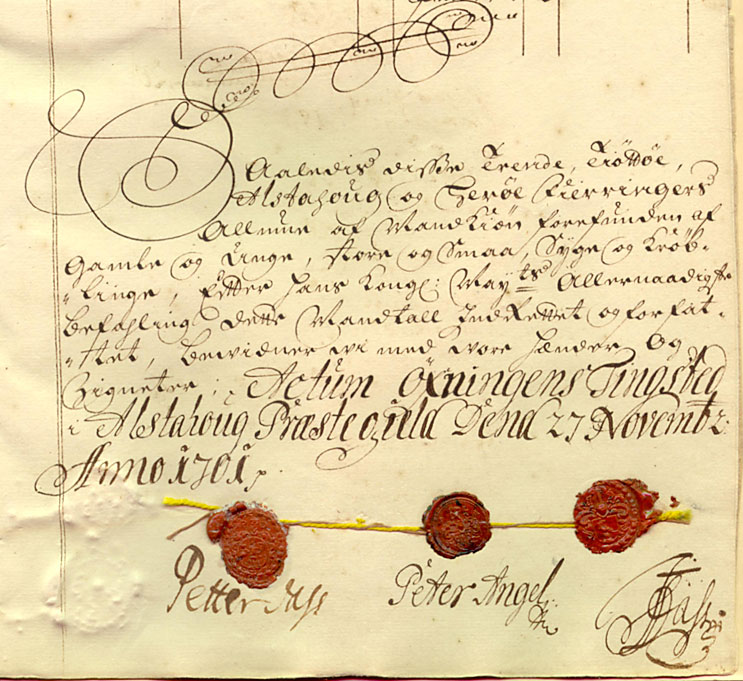 Saaledis disse Trende, Tiøttøe,
Alstahoug og Herøe Fierringers
Allmue af Mandkiøn forefunden af
Gamle og Unge, store og Smaa, Syge og Krøb-
-linge, Efter Hans Kongl: Mayts Allernaadigste
befahling dette Mandtall Indrettet og forfat-
-tet, bevidner vi med vore Hænder og
Signeter; Actum Øxningens Tingsted
i Alstahoug Præstegield Dend 27 Novembr:
Anno 1701
Petter Dass Peter Angel